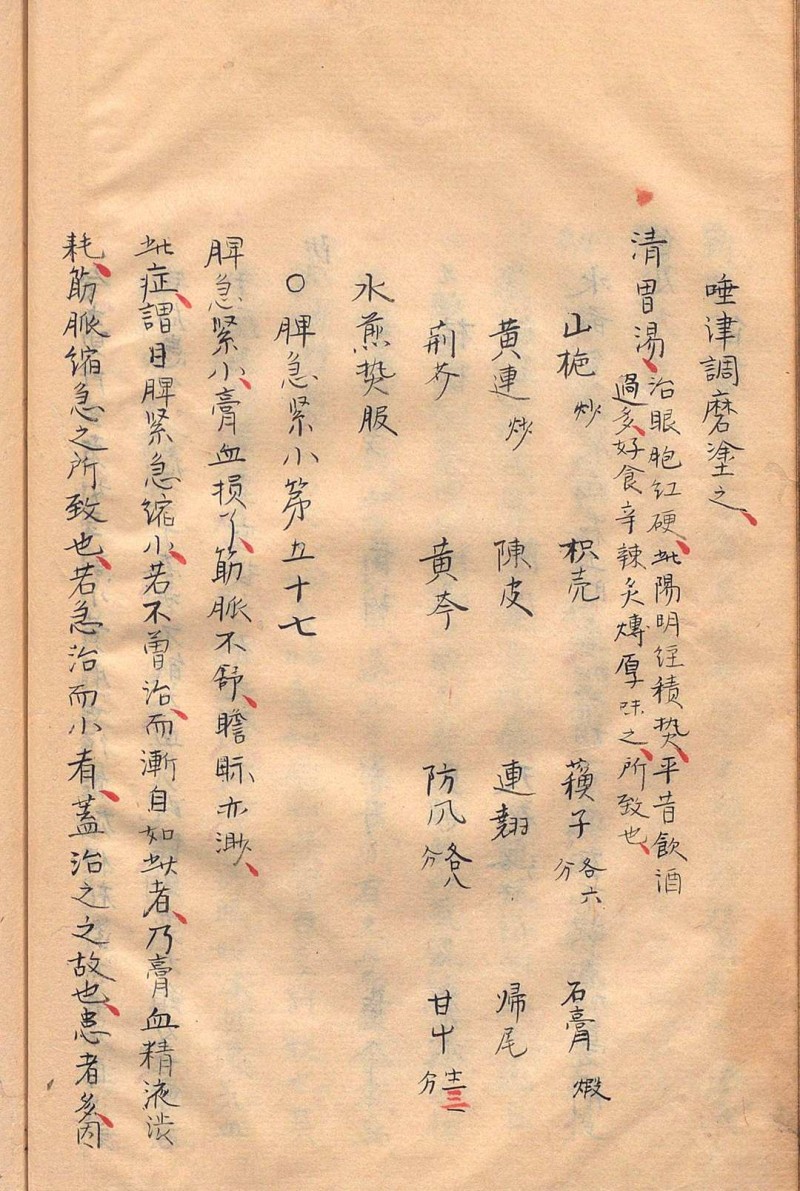 唾津調磨塗之
清胃湯治眼胞红硬此陽明经積热平昔飲酒
過多好食辛辣炙煿厚味之所致也
山栀炒 枳壳 蘓子各六分 石膏煅
黄連炒 陳皮 連翹 帰尾
荊芥 黄芩 防风各八分 甘艹三分
水煎热服
○脾急紧小第五十七
脾急紧小膏血损了筋脈不舒瞻眎亦渺
此症謂目脾紧急缩小若不曽治而漸自如此者乃膏血精液涉
耗筋脈缩急之所致也若急治而小者蓋治之之故也患者多因